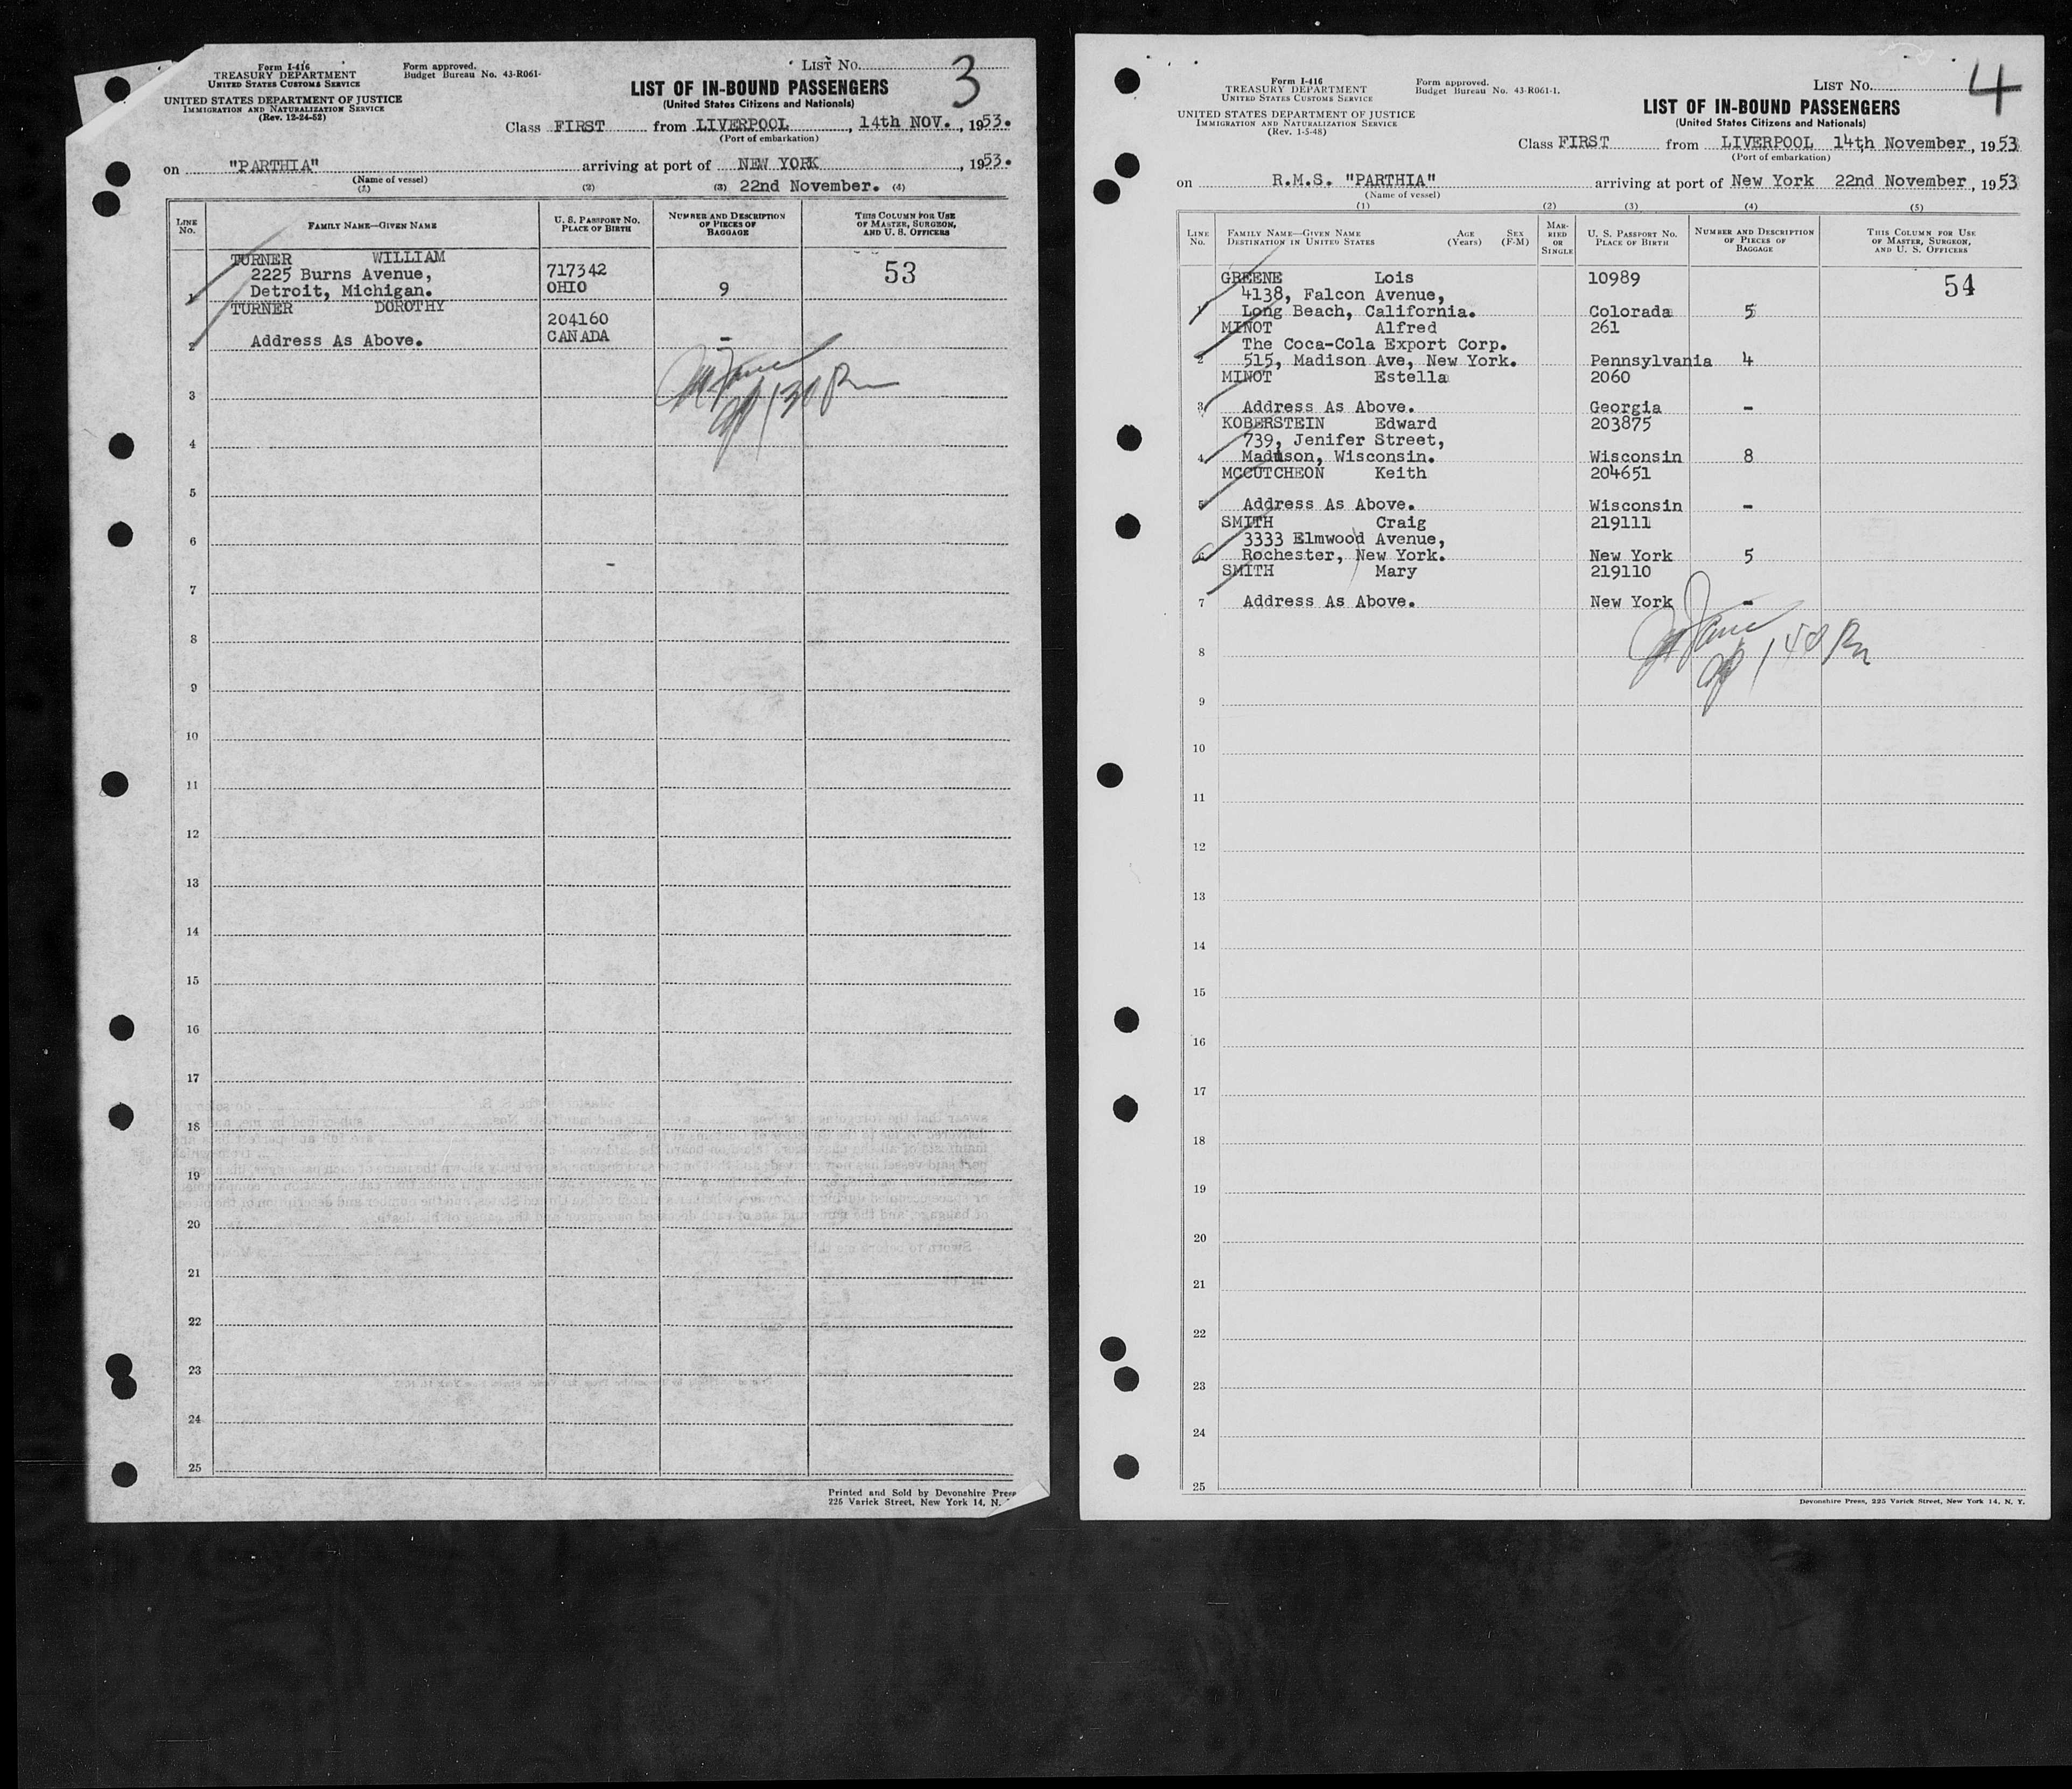 Form I-416
TREASURY DEPARTMENT
UNITED STATES CUSTOMS SERVICE
UNITED STATES DEPARTMENT OF JUSTICE
IMMIGRATION AND NATURALIZATION SERVICE
(Rev. 12-24-52)
Form approved.
Budget Bureau No. 43-R061-
LIST No. 3
LIST OF IN-BOUND PASSENGERS
(United States Citizens and Nationals)
Class FIRST from LIVERPOOL, 14th NOV., 1953.
(Port of embarkation)
on "PARTHIA" arriving at port of NEW YORK, 1953.
(Name of vessel)
(1) (2) (3) 22nd November. (4)
LINE No. FAMILY NAME—GIVEN NAME U. S. PASSPORT NO. PLACE OF BIRTH NUMBER AND DESCRIPTION OF PIECES OF BAGGAGE THIS COLUMN FOR USE OF MASTER, SURGEON, AND U. S. OFFICERS
TURNER WILLIAM
2225 Burns Avenue, 717342 53
1 Detroit, Michigan. OHIO 9
TURNER DOROTHY
204160
2 Address As Above. CANADA -
3
4
5
6
7
8
9
10
11
12
13
14
15
16
17
18
19
20
21
22
23
24
25
Printed and Sold by Devonshire Press
225 Varick Street, New York 14, N.
Form I-416
TREASURY DEPARTMENT
UNITED STATES CUSTOMS SERVICE
UNITED STATES DEPARTMENT OF JUSTICE
IMMIGRATION AND NATURALIZATION SERVICE
(Rev. 1-5-48)
Form approved.
Budget Bureau No. 43-R061-1.
LIST No. 4
LIST OF IN-BOUND PASSENGERS
(United States Citizens and Nationals)
Class FIRST from LIVERPOOL 14th November, 1953
(Port of embarkation)
on R.M.S. "PARTHIA" arriving at port of New York 22nd November, 1953
(Name of vessel)
(1) (2) (3) (4) (5)
LINE No. FAMILY NAME—GIVEN NAME DESTINATION IN UNITED STATES AGE (Years) SEX (F-M) MARRIED OR SINGLE U. S. PASSPORT NO. PLACE OF BIRTH NUMBER AND DESCRIPTION OF PIECES OF BAGGAGE THIS COLUMN FOR USE OF MASTER, SURGEON, AND U. S. OFFICERS
GREENE Lois 10989 54
4138, Falcon Avenue,
1 Long Beach, California. Colorada 5
MINOT Alfred 261
The Coca-Cola Export Corp.
2 515, Madison Ave, New York. Pennsylvania 4
MINOT Estella 2060
3 Address As Above. Georgia -
KOBERSTEIN Edward 203875
739, Jenifer Street,
4 Madison, Wisconsin. Wisconsin 8
MCCUTCHEON Keith 204651
5 Address As Above. Wisconsin -
SMITH Craig 219111
3333 Elmwood Avenue,
6 Rochester, New York. New York 5
SMITH Mary 219110
7 Address As Above. New York -
8
9
10
11
12
13
14
15
16
17
18
19
20
21
22
23
24
25
Devonshire Press, 225 Varick Street, New York 14, N. Y.